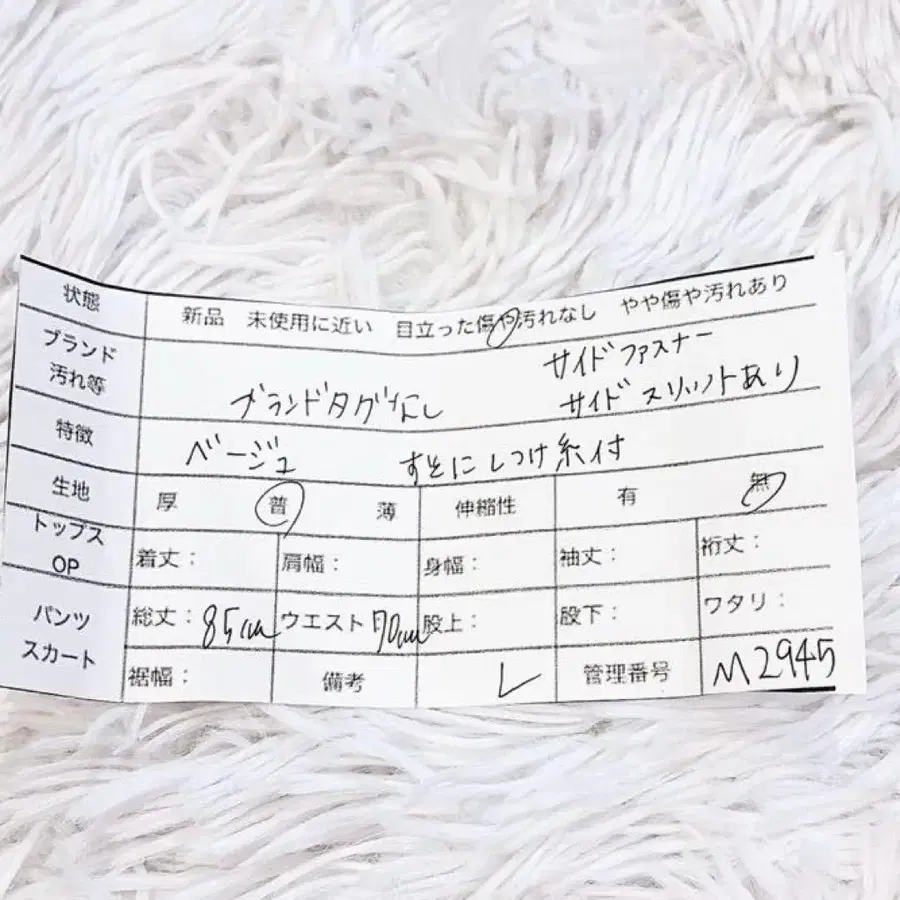 状態 新品 未使用に近い 目立った傷や汚れなし やや傷や汚れあり
ブランド
汚れ等
サイドファスナー
ブランドタグなし サイドスリットあり
特徴 ベージュ すそにしつけ糸付
生地 厚 普 薄 伸縮性 有 無
トップス
OP
着丈: 肩幅: 身幅: 袖丈: 裄丈:
パンツ
スカート
総丈: 85cm ウエスト 70cm 股上: 股下: ワタリ:
裾幅: 備考 L 管理番号 M2945